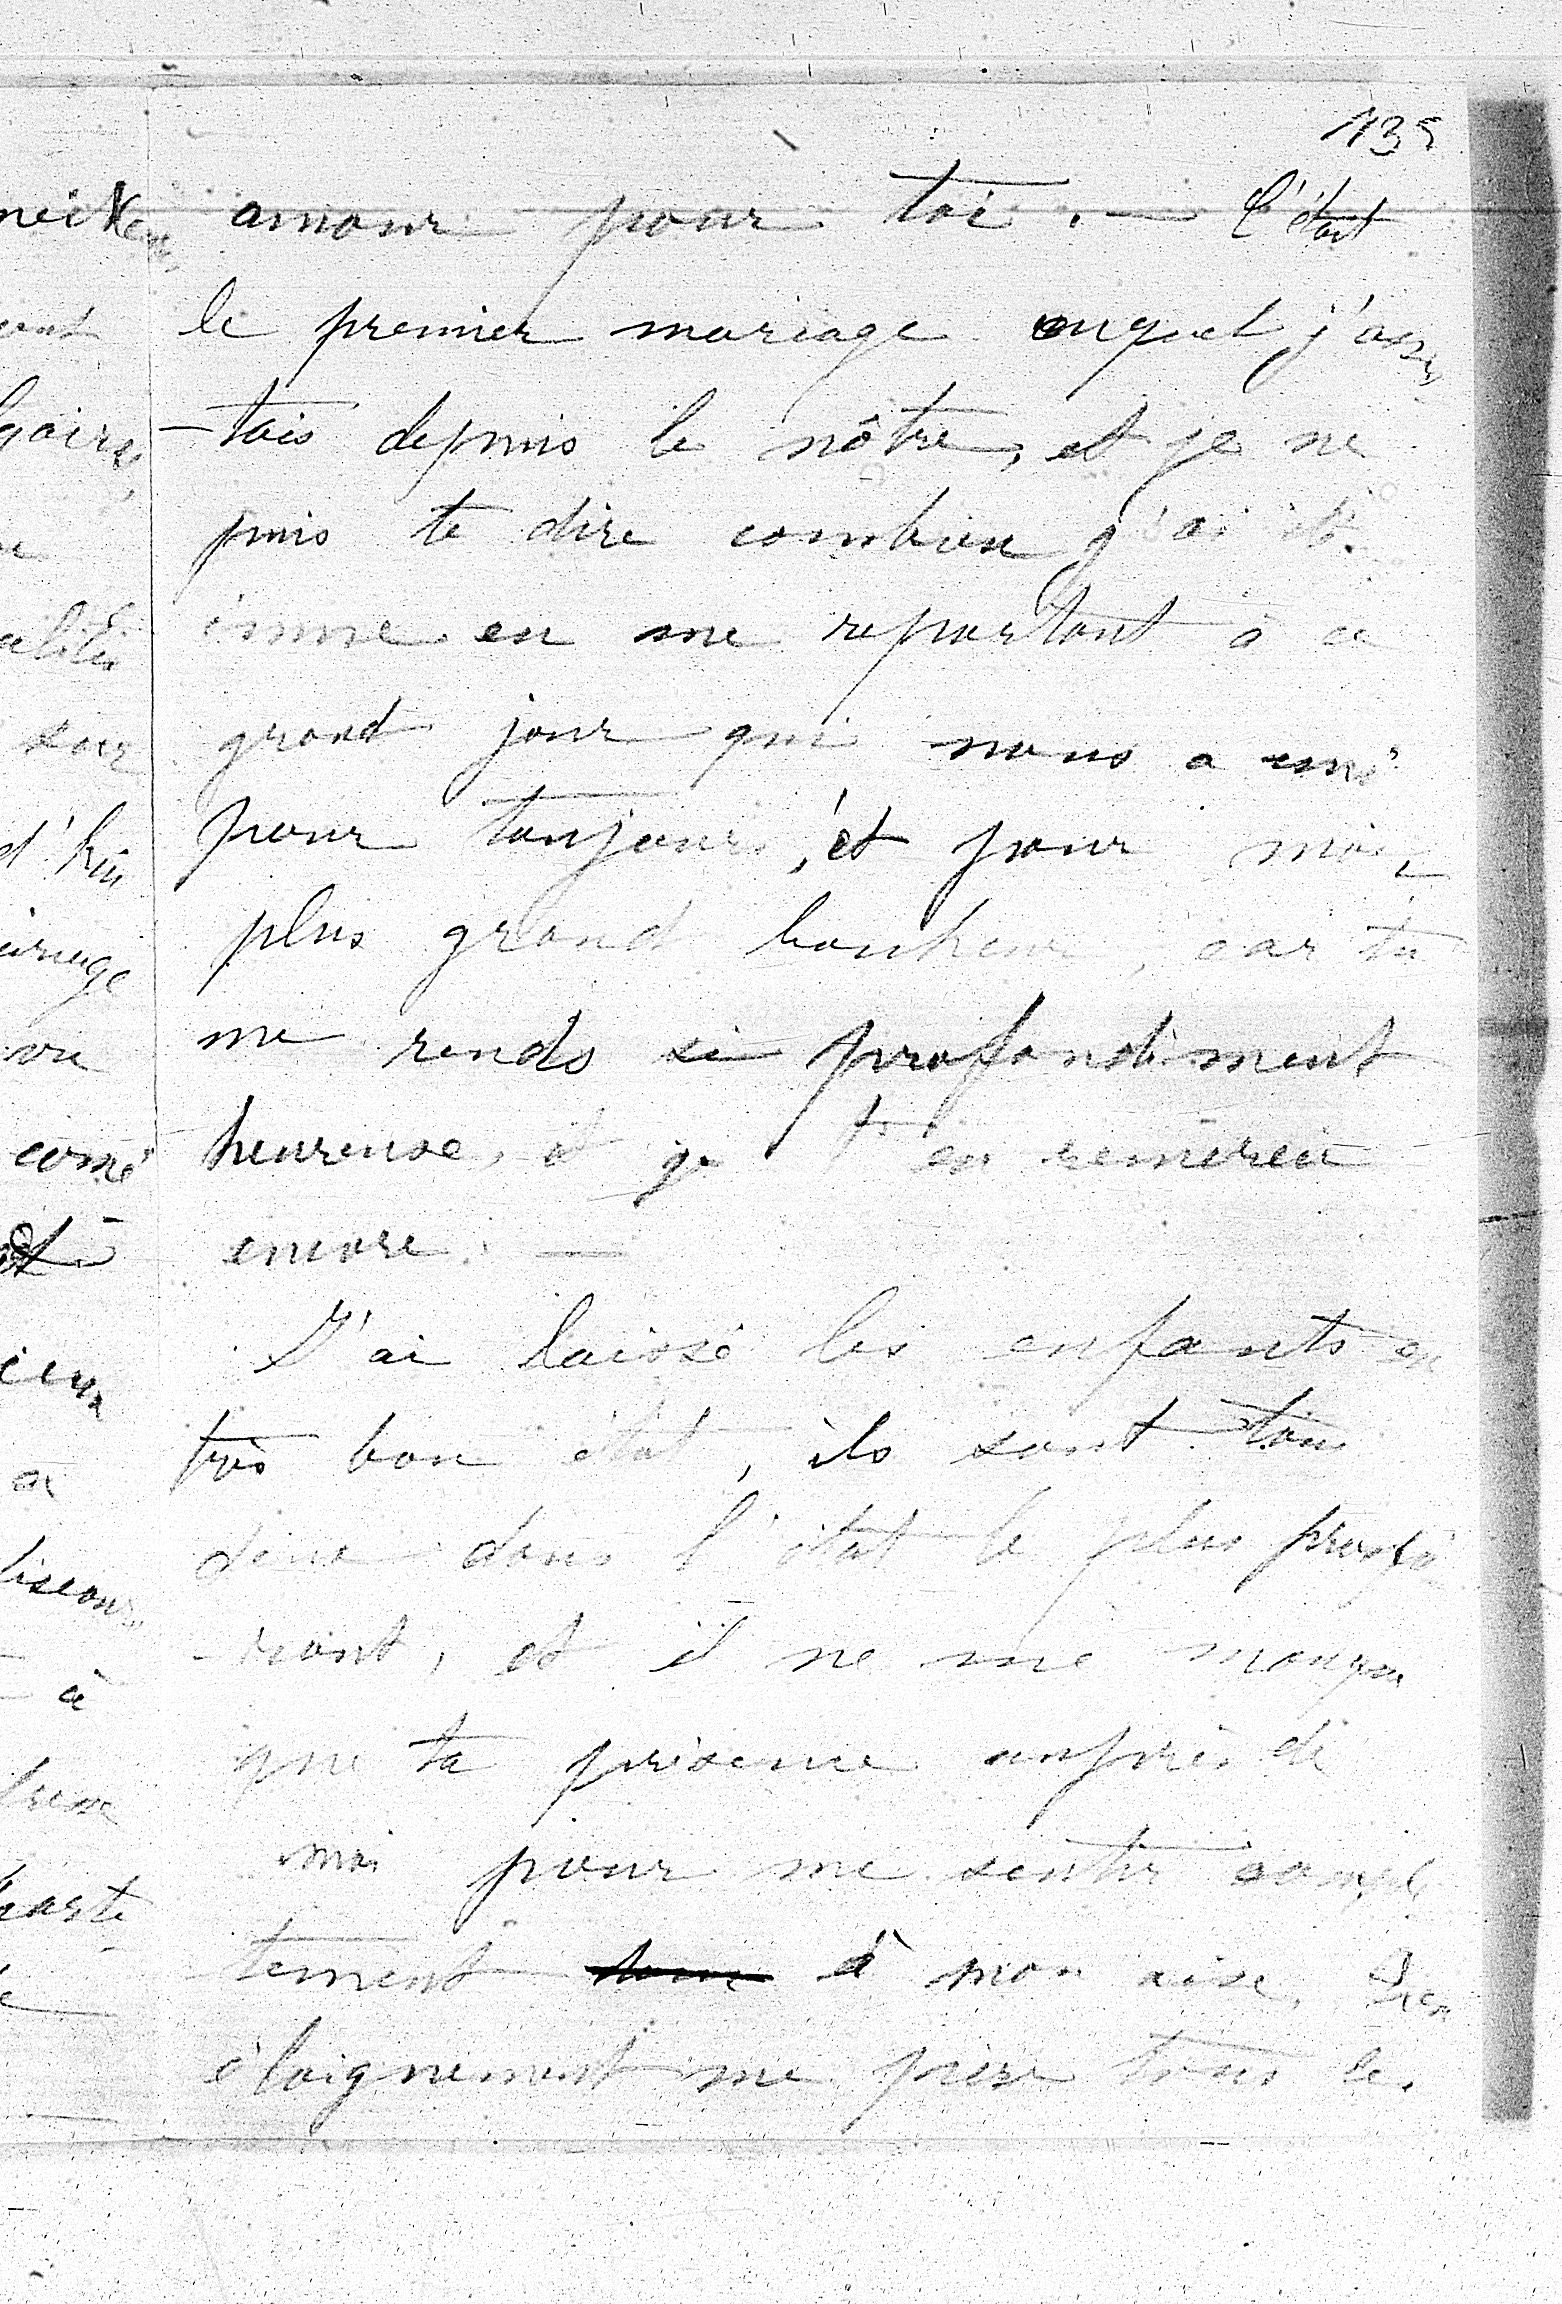 135
amour pour toi. — C'était
le premier mariage auquel j'assis
-tais depuis le nôtre, et je ne
puis te dire combien j'ai été
émue en me reportant à ce
grand jour qui nous a unis
pour toujours, et pour mon
plus grand bonheur, car tu
me rends si profondément
heureuse, et je t'en remercie
encore. —
J'ai laissé les enfants en
très bon état, ils sont tous
donc dans l'état le plus prospé
-rant, et il ne me manque
que ta présence auprès de
moi pour me sentir complè
tement à mon aise. Ton
éloignement me pèse tous les